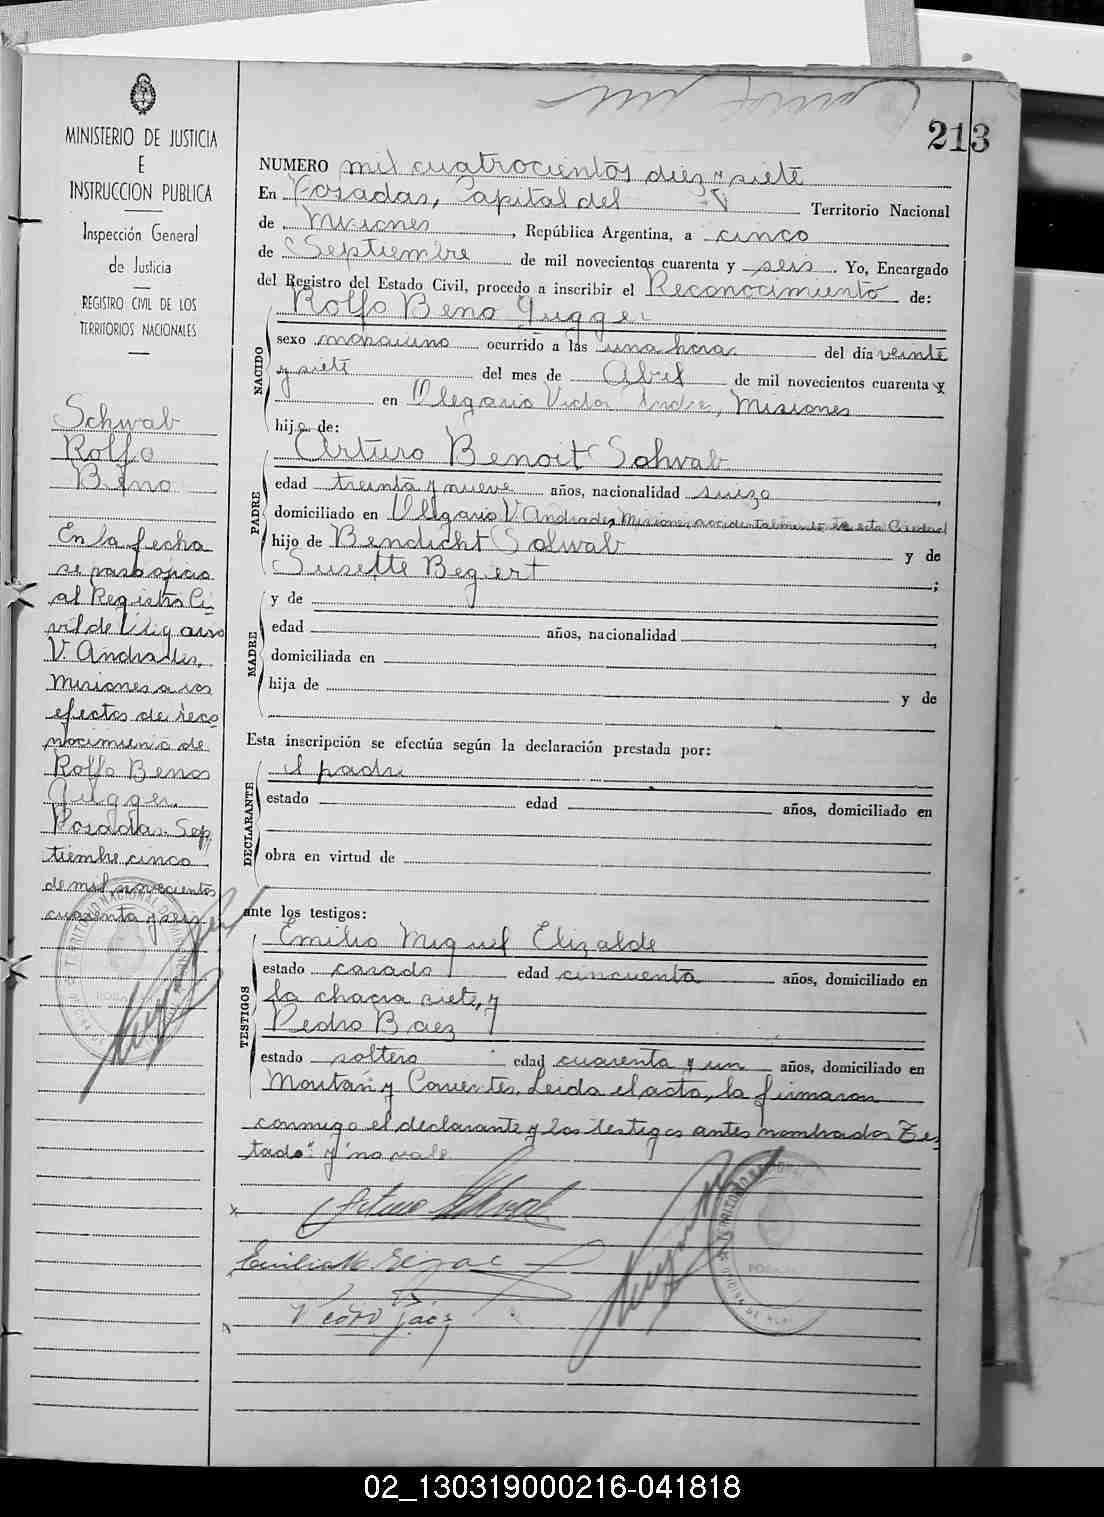 213
MINISTERIO DE JUSTICIA
E
INSTRUCCION PUBLICA
Inspección General
de Justicia
REGISTRO CIVIL DE LOS
TERRITORIOS NACIONALES
Schwab
Rolfo
Beno
En la fecha
se paso oficio
al Registro Ci-
vil de Olegario
V. Andrades,
Misiones a los
efectos de reco
nocimiento de
Rolfo Benos
Gugger.
Posadas. Sep
tiembre cinco
de mil novecientos
cuarenta y seis
NUMERO mil cuatrocientos diez y siete
En Posadas, Capital del Territorio Nacional
de Misiones, República Argentina, a cinco
de Septiembre de mil novecientos cuarenta y seis. Yo, Encargado
del Registro del Estado Civil, procedo a inscribir el Reconocimiento de:
Rolfo Beno Gugger
NACIDO
sexo masculino ocurrido a las una hora del día veinte
y siete del mes de Abril de mil novecientos cuarenta y
en Olegario Victor Andre, Misiones
hijo de:
PADRE
Arturo Benoit Schwab
edad treinta y nueve años, nacionalidad suizo,
domiciliado en Olegario V. Andrades, Misiones, accidentalmente en esta Ciudad
hijo de Bendicht Schwab y de
Susette Begert;
MADRE
y de
edad años, nacionalidad
domiciliada en
hija de y de
Esta inscripción se efectúa según la declaración prestada por:
DECLARANTE
el padre
estado edad años, domiciliado en
obra en virtud de
ante los testigos:
TESTIGOS
Emilio Miguel Elizalde
estado casado edad cincuenta años, domiciliado en
la chacra siete, y
Pedro Baez
estado soltero edad cuarenta y un años, domiciliado en
y Corrientes. Leida el acta, la firmaron
conmigo el declarante y los testigos antes nombrados Tes
tado: "y" no vale.
Arturo Schwab
Pedro Báez
02_130319000216-041818